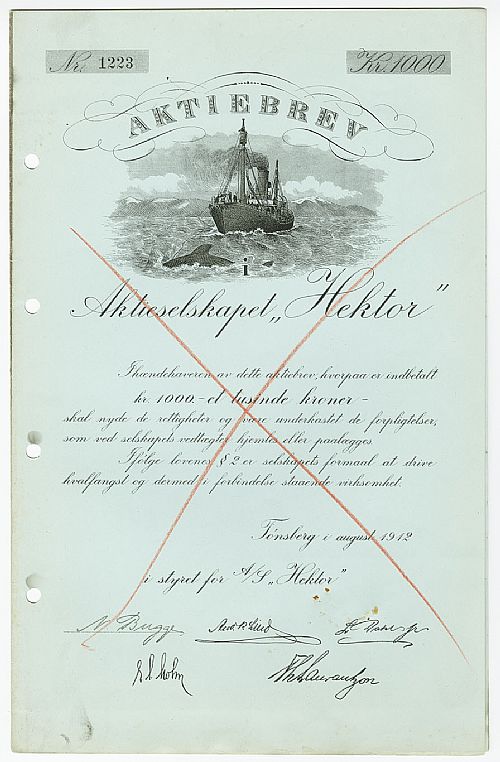 Nr. 1223
Kr. 1000
AKTIEBREV
i
Aktieselskapet „Hektor"
Ihændehaveren av dette aktiebrev, hvorpaa er indbetalt
kr. 1000.- et tusinde kroner -
skal nyde de rettigheter og være underkastet de forpligtelser,
som ved selskapets vedtægter hjemles eller paalægges.
Ifølge lovenes § 2 er selskapets formaal at drive
hvalfangst og dermed i forbindelse staaende virksomhet.
Tønsberg i august 1912
i styret for A/S „Hektor"
N. Bugge